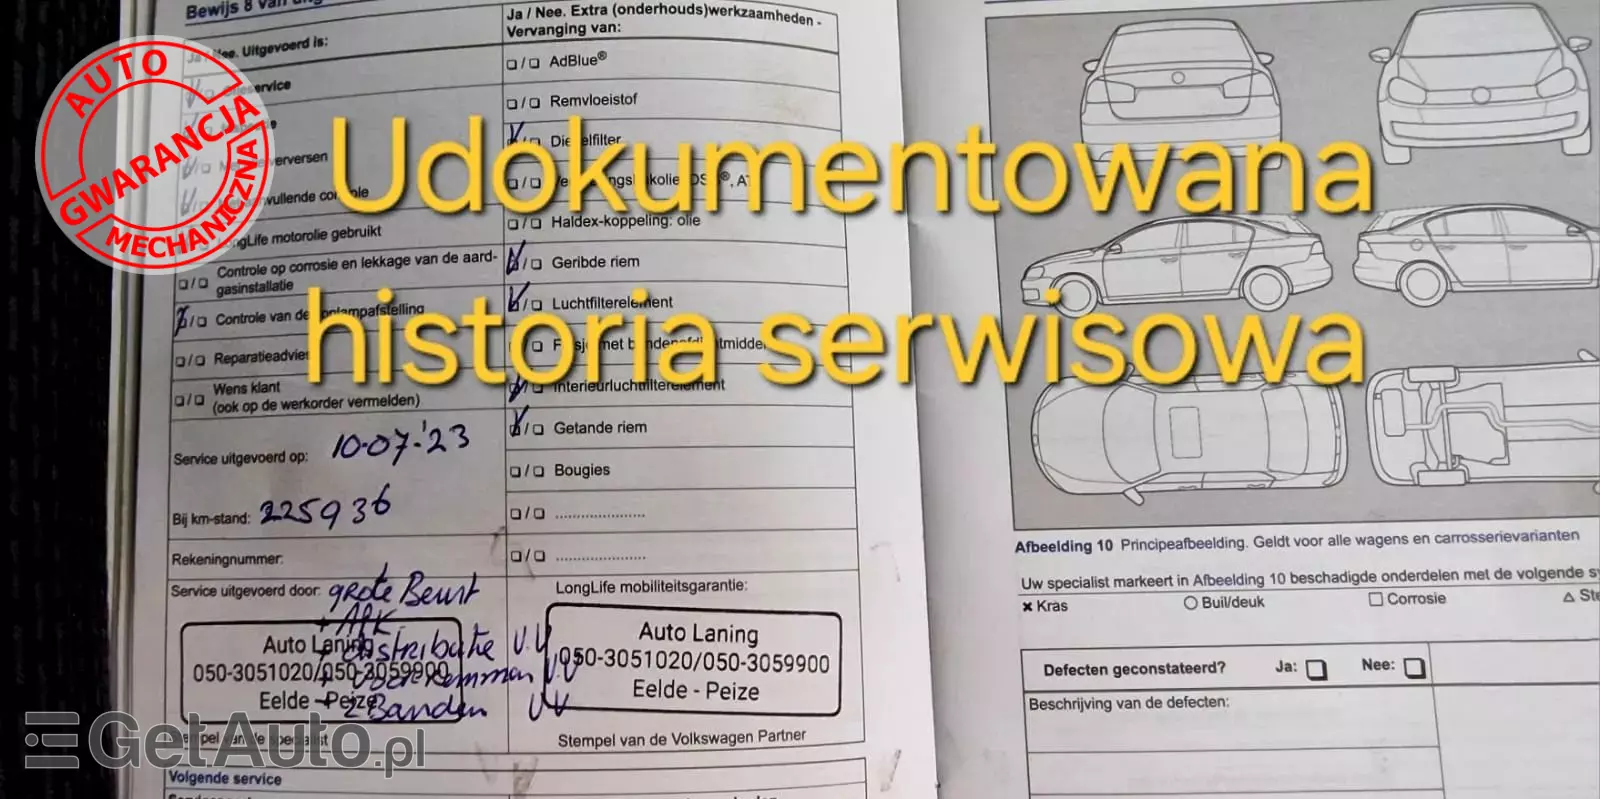 Bewijs 8 van
Ja / Nee. Uitgevoerd is:
Olieservice
verversen
LongLife motorolie gebruikt
Controle op corrosie en lekkage van de aard-
gasinstallatie
Controle van de koplampafstelling
Reparatieadvies
Wens klant
(ook op de werkorder vermelden)
Service uitgevoerd op: 10-07-'23
Bij km-stand: 225936
Rekeningnummer:
Service uitgevoerd door: grote Beurt
+ APK
+ distributie V.V
V.V
+ 2 Banden VV
Auto Laning
050-3051020/050-3059900
Eelde - Peize
Stempel van de specialist
Volgende service
Ja / Nee. Extra (onderhouds)werkzaamheden -
Vervanging van:
AdBlue®
Remvloeistof
Dieselfilter
Haldex-koppeling: olie
Geribde riem
Luchtfilterelement
Interieurluchtfilterelement
Getande riem
Bougies
LongLife mobiliteitsgarantie:
Auto Laning
050-3051020/050-3059900
Eelde - Peize
Stempel van de Volkswagen Partner
Afbeelding 10 Principeafbeelding. Geldt voor alle wagens en carrosserievarianten
Uw specialist markeert in Afbeelding 10 beschadigde onderdelen met de volgende
Kras
Buil/deuk
Corrosie
Defecten geconstateerd? Ja: Nee:
Beschrijving van de defecten:
Udokumentowana
historia serwisowa
AUTO
GWARANCJA
MECHANICZNA
GetAuto.pl